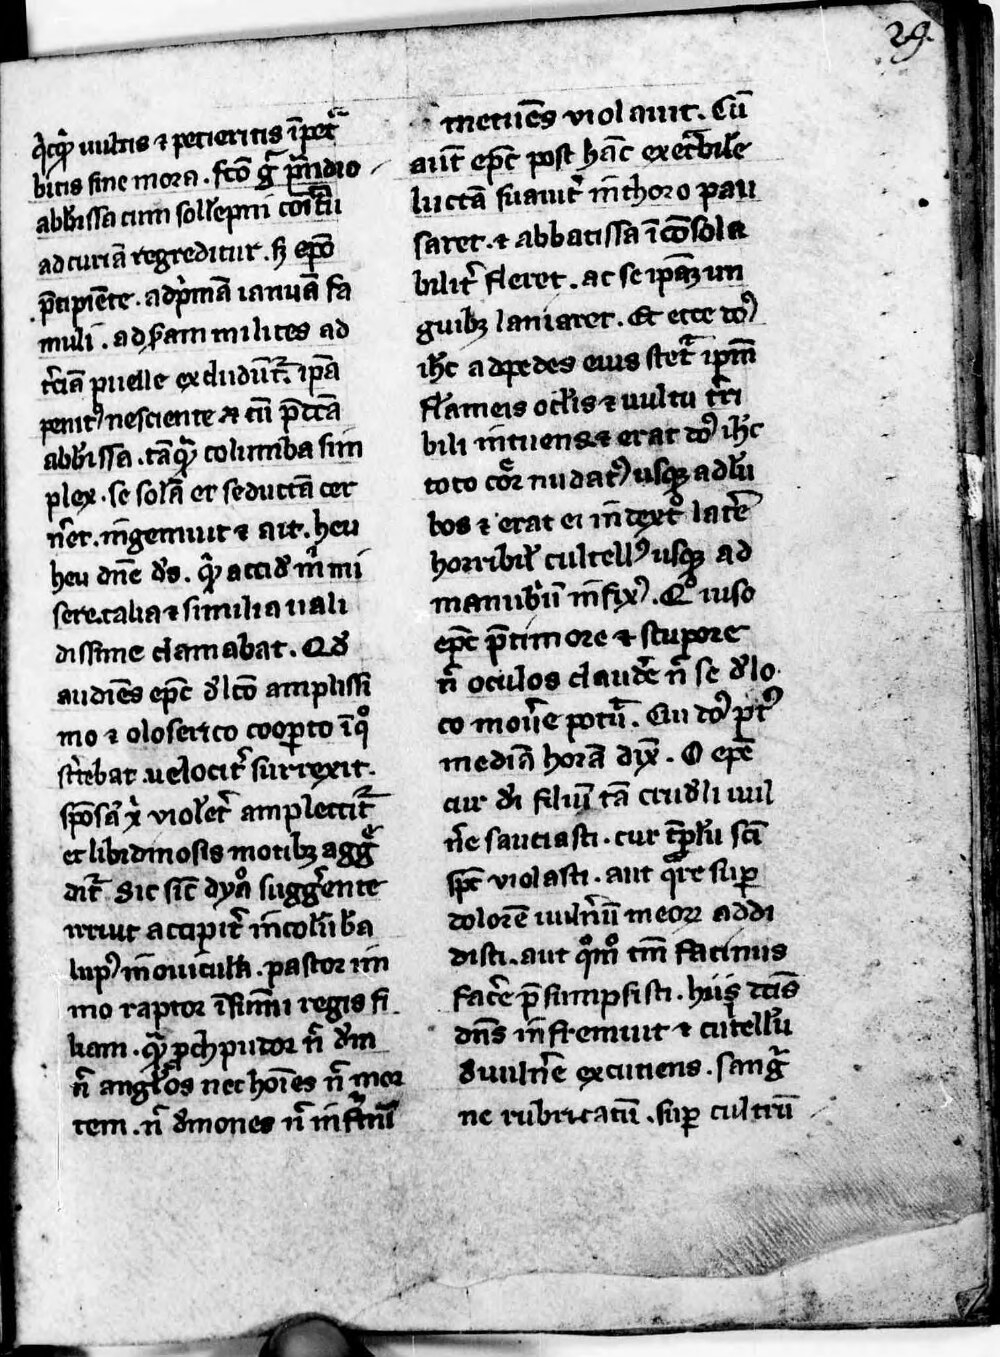 29.
q̄cq̨ vultis ⁊ petieritis īpet̄
bitis sine mora . fc̄o g̊ p̄ndio
abbīssa cum soll̄epni comit̄u
ad curiā regreditur . ſʒ ep̄o
p̄cipiēte . ad p̄mā ianuā fa
muli . ad ſ̄cam milites ad
t̄ciā puelle excludūt᷑ . ip̄a
penitꝰ nesciente ⁊ cū p̄dc̄a
abb̄issa . tāq̄ columba sim
plex . se solā et seductā cer
n̄et . ingemuit ⁊ ait . heu
heu dn̄e d̄s . q̄ accid̄ m̄ mi
sere . talia ⁊ similia uali
dissime clamabat . Qd̄
audiēs ep̄c d̄ lc̄o amplissi
mo ⁊ oloserico coop̄to ī q̊
st̄ebat uelocit̄ surrexit .
sp̄osā x̄ violet̄ amplectit᷑
et libidinosis motibꝫ agḡ
dit᷑ Sic sic̄ dyā̊ sugḡente
irruit accipit̄ in colūba
lupꝰ in ouicul̄a . pastor im
mo raptor ī sum̄i regis fi
liam . q̄ p̄ch pudor n̄ d̄m
n̄ angl̄os nec hoīes n̄ mor
tem . n̄ d̄mones n̄ infernū
metuēs violauit . Cū
aut̄ ep̄c post hāc execrabile
luctā suauit̄ in thoro pau
saret . ⁊ abbatissa īcōsola
bilit̄ fleret . ac se ipāꝫ un
guibꝫ laniaret . Et ecce dō̄
ih̄c ad pedes eius stet̄ ip̄m
flāmeis ocl̄is ⁊ uultu t̄ri
bili intuens . ⁊ erat dō̄ ih̄c
toto cōr̄e nudatꝰ usq̨ ad lū
bos ⁊ erat ei in dext̊ lat̄e
horribil̄ cultellꝰ usq̨ ad
manubriū infixꝰ . Q̊ uiso
ep̄c p̄ timore ⁊ stupore
n̄ oculos claud̄e n̄ se d̄ lo
co mou̅e potu̅ . Cui dō̄ p̄tꝰ
mediā horā dix̄ . O ep̄e
cur d̄i filiū tā crud̄li uul
n̄e sauciasti . cur tp̄lū sc̄i
sp̄c violasti . aut q̄re sup̄
dolorē uuln̄iū meoꝝ addi
disti . aut q̊m̊ tm̄ facinus
fac̄e p̄sumpsisti . hiis dc̄is
dn̄s infremuit ⁊ cultellū
d̄ uuln̄e excutiens . sang̅
ne rubricatū . sup̄ cultrū